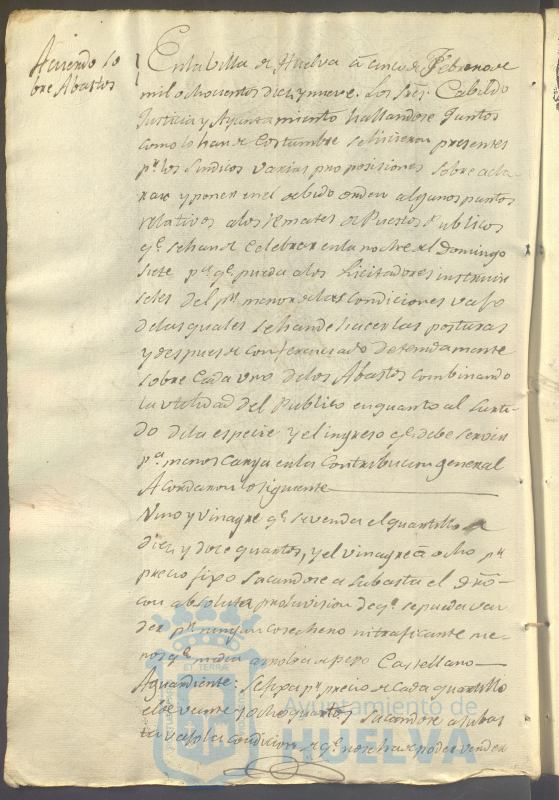 Acuerdo so
bre Abastos
En la Villa de Huelva à cinco de Febrero de
mil ochocientos diez y nueve. Los Sres. Cabildo
Justicia y Ayuntamiento hallandose Juntos
como lo han de Costumbre se hicieron presentes
pr. los Sindicos varias proposiciones sobre acla
rar y poner en el debido orden algunos puntos
relativos a los remates de Puestos Publicos
qe. se han de Celebrar en la noche del Domingo
siete pa. qe. pueda a los Licitadores instruir
seles del pr. menor de las Condiciones vajo
de las quales se han de hacer las posturas
y despues de conferenciado detenidamente
sobre Cada uno de los Abastos Combinando
la utilidad del Publico en quanto al Surti
do de la especie y el ingreso qe. debe servir
pa. menos Carga en la Contribucion general
Acordaron lo siguiente
Vino y vinagre qe. se venda el quartillo a
diez y doce quartos, y el vinagre à ocho pr.
precio fijo sacandose a subasta el dro.
con absoluta prohivision de qe. se pueda ven
der pr. ningun Cosechero ni traficante me
nos qe. media arroba de peso Castellano
Aguardiente: Se fixa pr. precio de Cada quartillo
el de veinte y ocho quartos sacandose a subas
ta vajo la Condicion de qe. no se ha de poder vender
ET TERRA
Ayuntamiento de
HUELVA